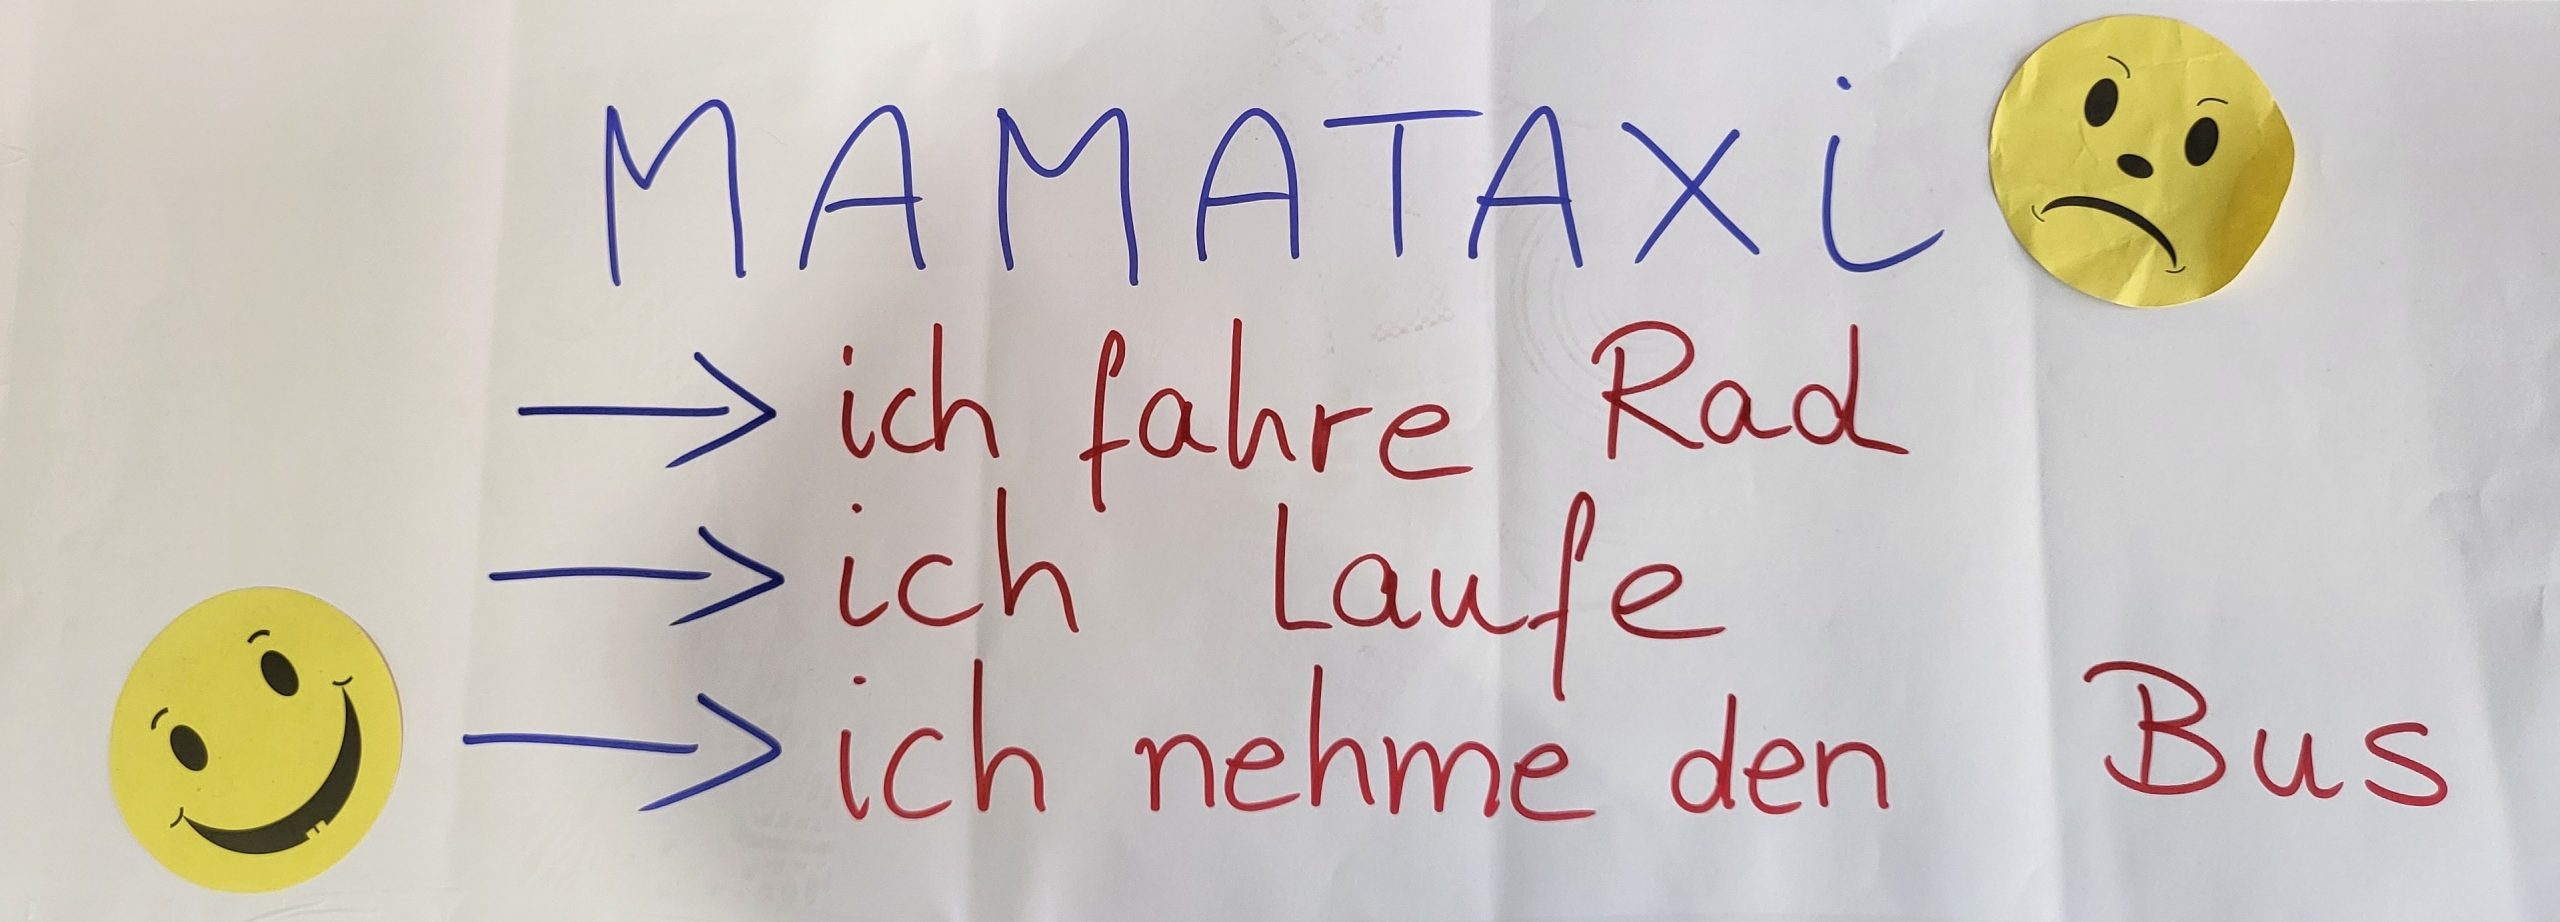 MAMATAXi
→ ich fahre Rad
→ ich Laufe
→ ich nehme den Bus